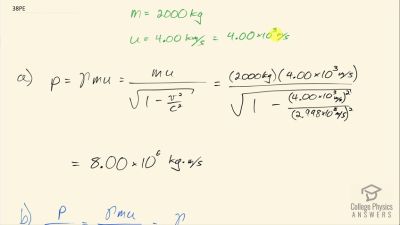 38PE
m = 2000 kg
u = 4.00 km/s = 4.00×10³ m/s
a) p = γmu = mu / √(1 − v²/c²) = (2000 kg)(4.00×10³ m/s) / √(1 − (4.00×10³ m/s)² / (2.998×10⁸ m/s)²)
= 8.00 × 10⁶ kg·m/s
b) p = γmu = γ
College Physics
ANSWERS